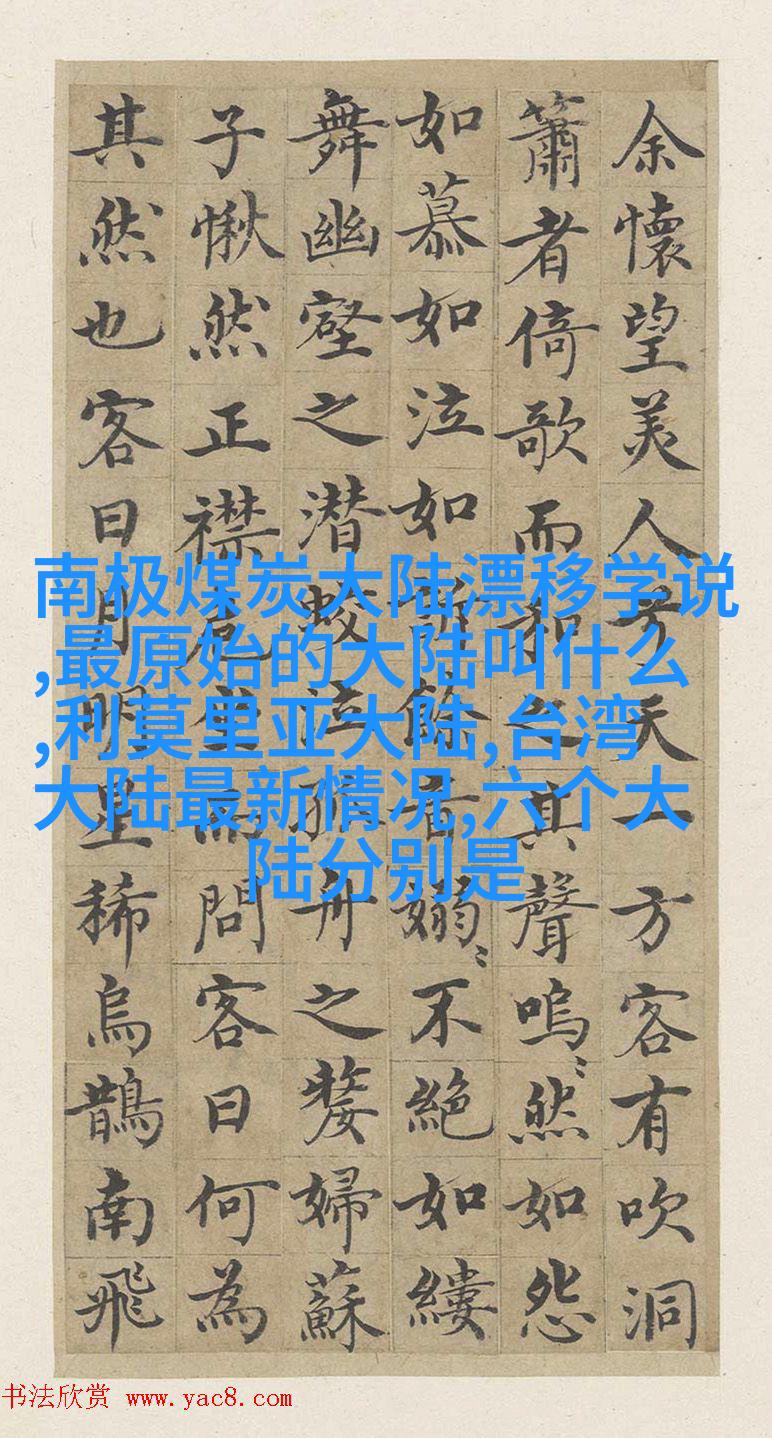 余懷望美人兮天一方客有吹洞
簫者倚歌而和之其聲嗚〻然如怨
如慕如泣如訴餘音嫋〻不絕如縷
舞幽壑之潜蛟泣孤舟之嫠婦蘇
子愀然正襟危坐而問客曰何為
其然也客曰月明星稀烏鵲南飛
南极煤炭大陆漂移学说
,最原始的大陆叫什么
,利莫里亚大陆,台湾
大陆最新情况,六个大
陆分别是
书法欣赏 www.yac8.com